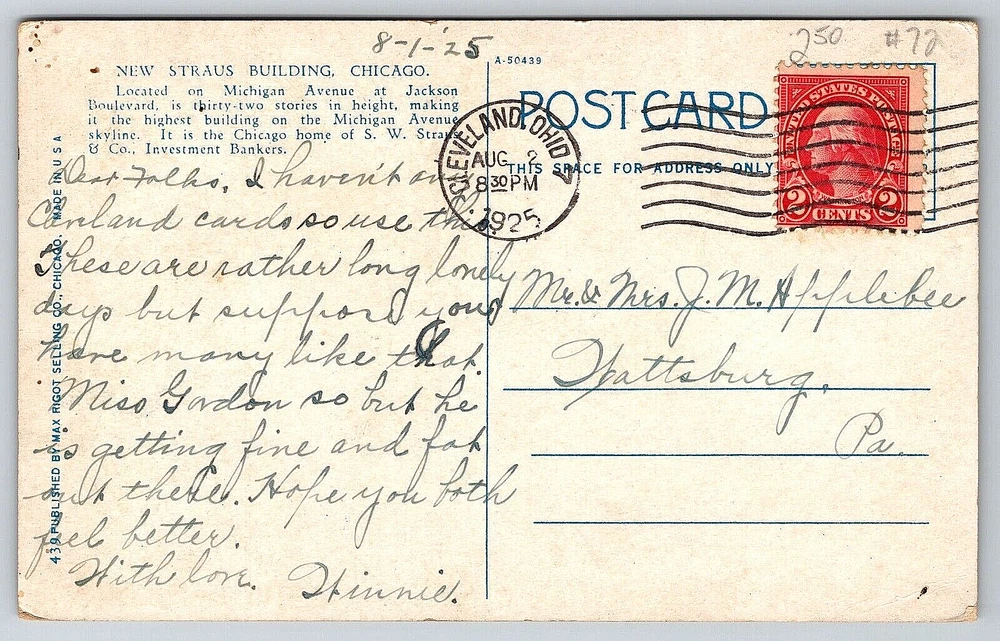 8-1-'25
250 #72
NEW STRAUS BUILDING, CHICAGO.
Located on Michigan Avenue at Jackson
Boulevard, is thirty-two stories in height, making
it the highest building on the Michigan Avenue
skyline. It is the Chicago home of S. W. Straus
& Co., Investment Bankers.
Dear Folks, I haven't any
so use the
These are rather long lonely
days but suppose you
have many like that.
Miss Gordon so but he
is getting fine and fat
out there. Hope you both
feel better.
With love. Winnie.
439 PUBLISHED BY MAX RIGOT SELLING CO., CHICAGO. MADE IN U S A
A-50439
POST CARD
THIS SPACE FOR ADDRESS ONLY
CLEVELAND, OHIO
AUG 2
8 30 PM
1925
UNITED STATES POSTAGE
2 CENTS 2
Mr. & Mrs. J. M. Applebee
Wattsburg,
Pa.